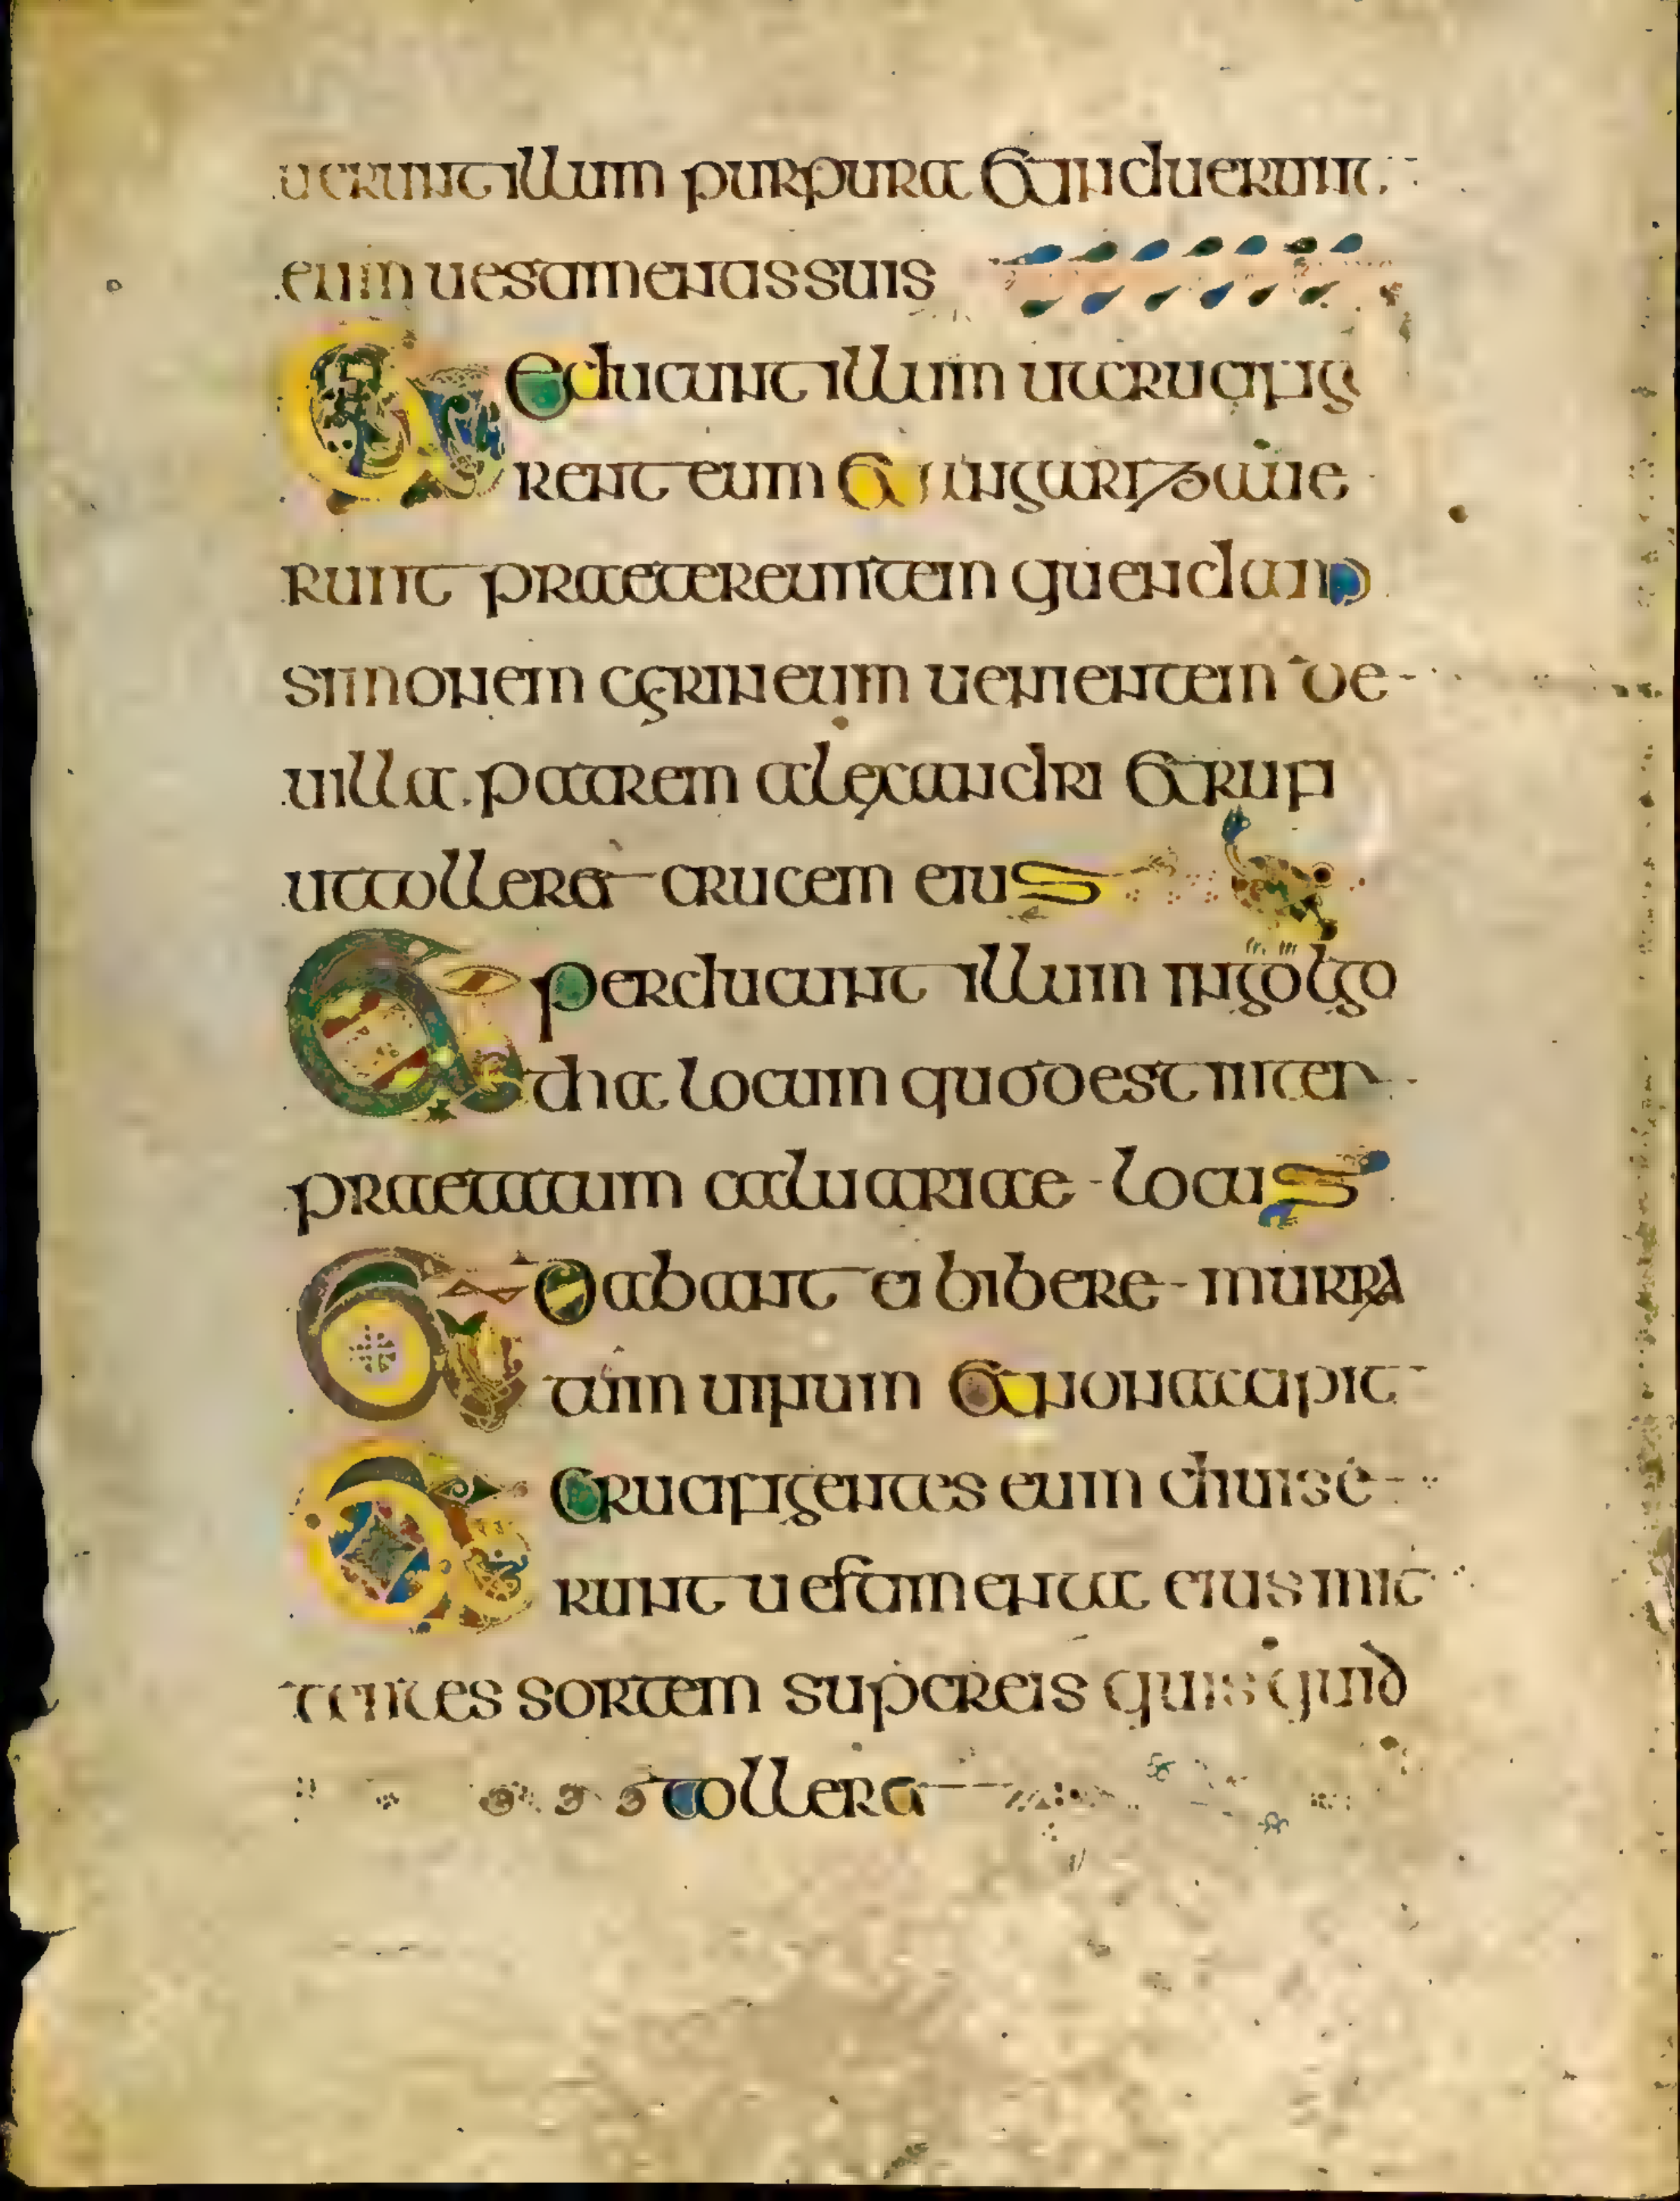 uerunt illum purpura et induerunt
eum uestimentis suis
Et educunt illum ut crucifige
rent eum et angurizaue
runt praetereuntem quendam
simonem cyrineum uenientem de
uilla patrem alexandri et rufi
ut tolleret crucem eius
Et perducunt illum in golgo
tha locum quod est inter
praetatum caluariae locus
Et dabant ei bibere murra
tum uinum et non accipit
Et crucifigentes eum diuise
runt uestimenta eius mit
tentes sortem super eis quis quid
tolleret